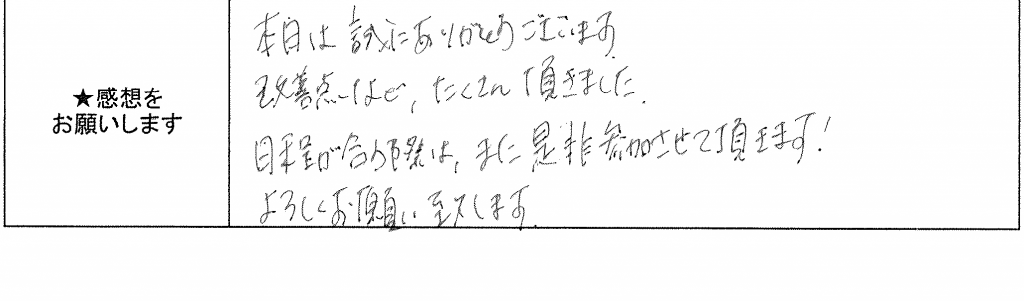 ★感想を
お願いします
本日は誠にありがとうございます。
改善点など、たくさん頂きました。
日程が合う際は、また是非参加させて頂きます!
よろしくお願い致します。